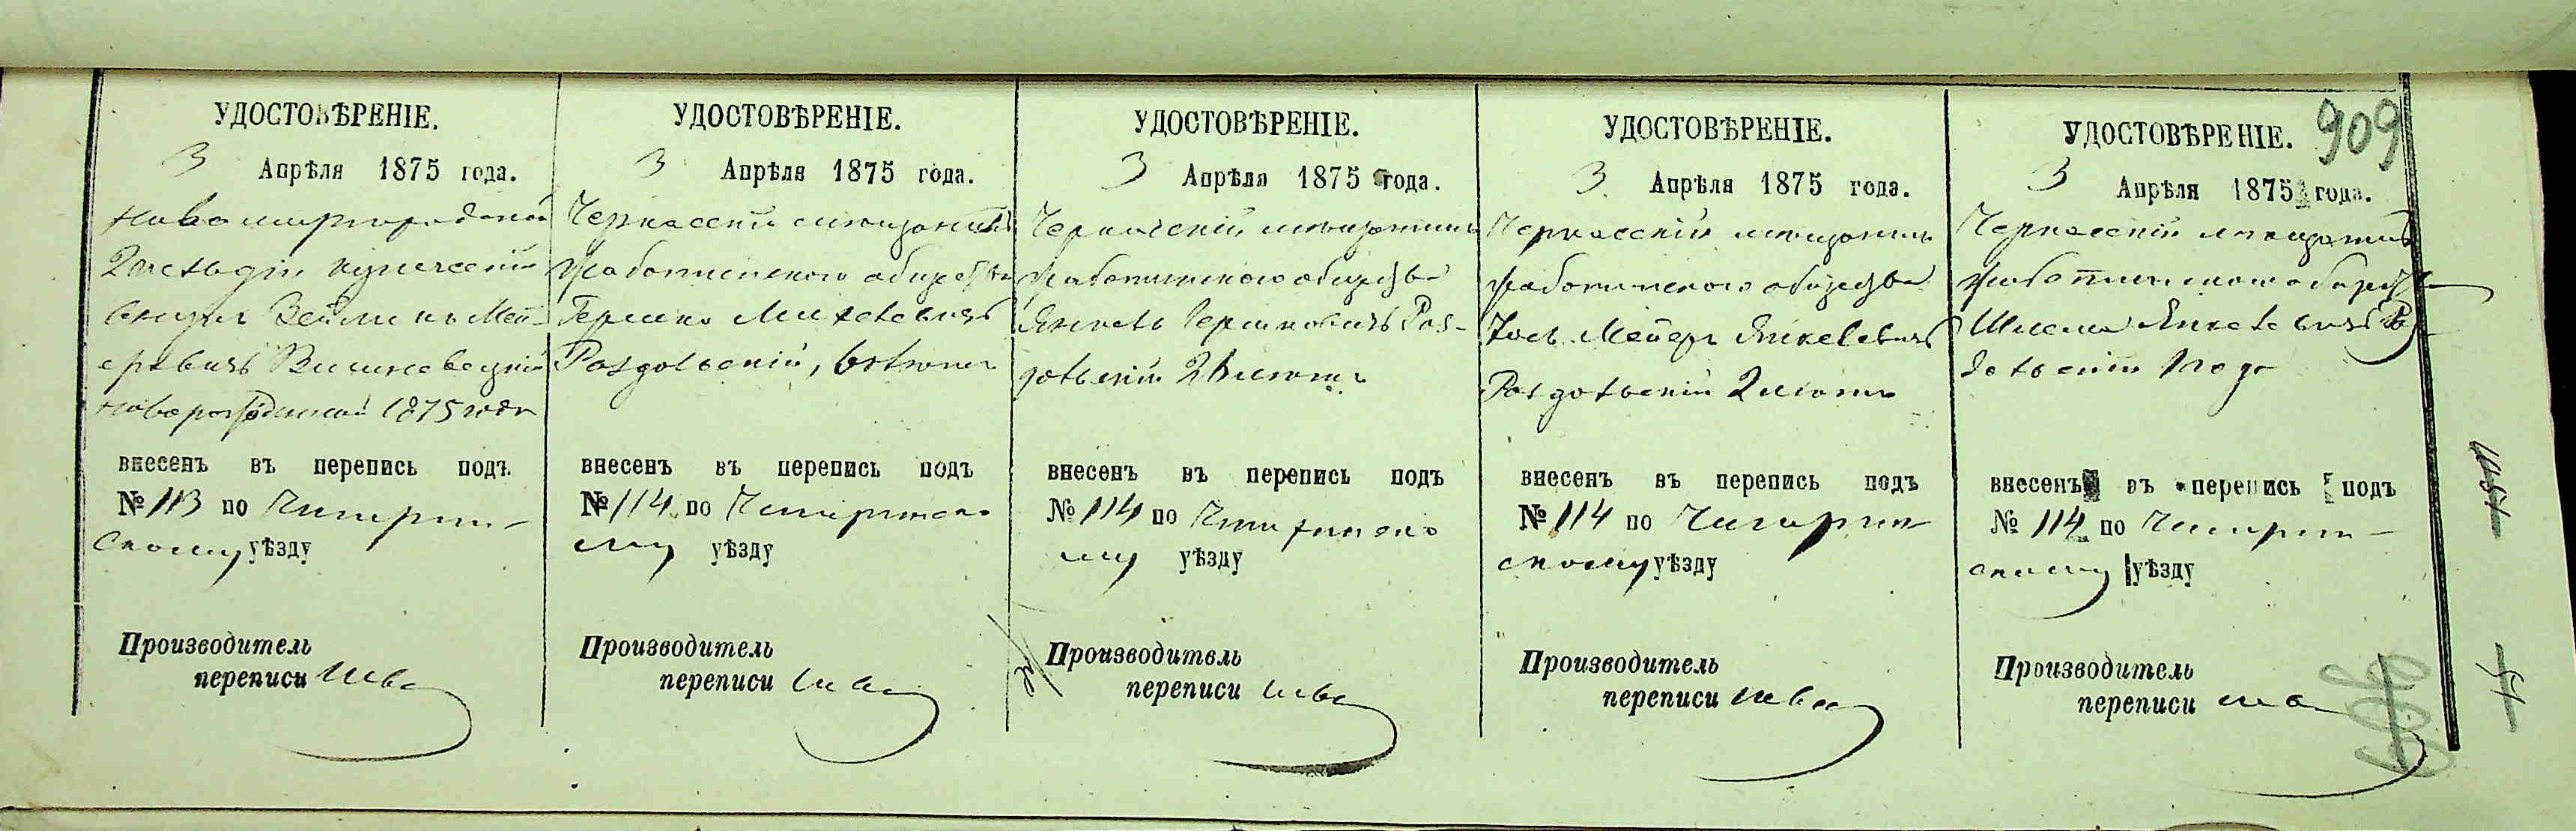 909
УДОСТОВѢРЕНІЕ.
3 Апрѣля 1875 года.
Новомиргородской
2 гильдіи купеческій
Мей-
еровичъ Вишневецкій
новорожденной 1875 года
внесенъ въ перепись подъ
№ 113 по Чигирин-
скому уѣзду
Производитель
переписи
УДОСТОВѢРЕНІЕ.
3 Апрѣля 1875 года.
Черкасскій мещанинъ
Жаботинского общества
Гершко
Раздольскій,
внесенъ въ перепись подъ
№ 114 по Чигиринско
му уѣзду
Производитель
переписи
УДОСТОВѢРЕНІЕ.
3 Апрѣля 1875 года.
Черкасскій мещанинъ
Жаботинского общества
Янкель Гершковичъ Раз-
дольскій
внесенъ въ перепись подъ
№ 114 по Чигиринско
му уѣзду
Производитель
переписи
УДОСТОВѢРЕНІЕ.
3 Апрѣля 1875 года.
Черкасскій мещанинъ
Жаботинского общества
Мейеръ Янкелевичъ
Раздольскій
внесенъ въ перепись подъ
№ 114 по Чигирин
скому уѣзду
Производитель
переписи
УДОСТОВѢРЕНІЕ.
3 Апрѣля 1875 года.
Черкасскій мещанинъ
Жаботинского общества
Шлема Янкелевичъ Раз
дольскій 1 года
внесенъ въ перепись подъ
№ 114 по Чигирин-
скому уѣзду
Производитель
переписи